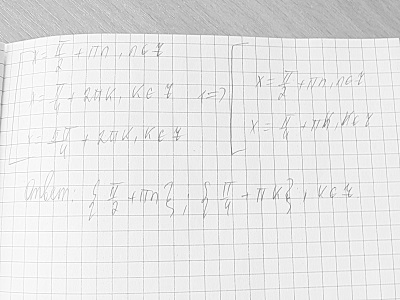 x = π/2 + πn, n∈Z
x = π/4 + 2πk, k∈Z <=> x = π/2 + πn, n∈Z
x = 5π/4 + 2πk, k∈Z x = π/4 + πk, k∈Z
Ответ: {π/2 + πn}; {π/4 + πk}, k∈Z.